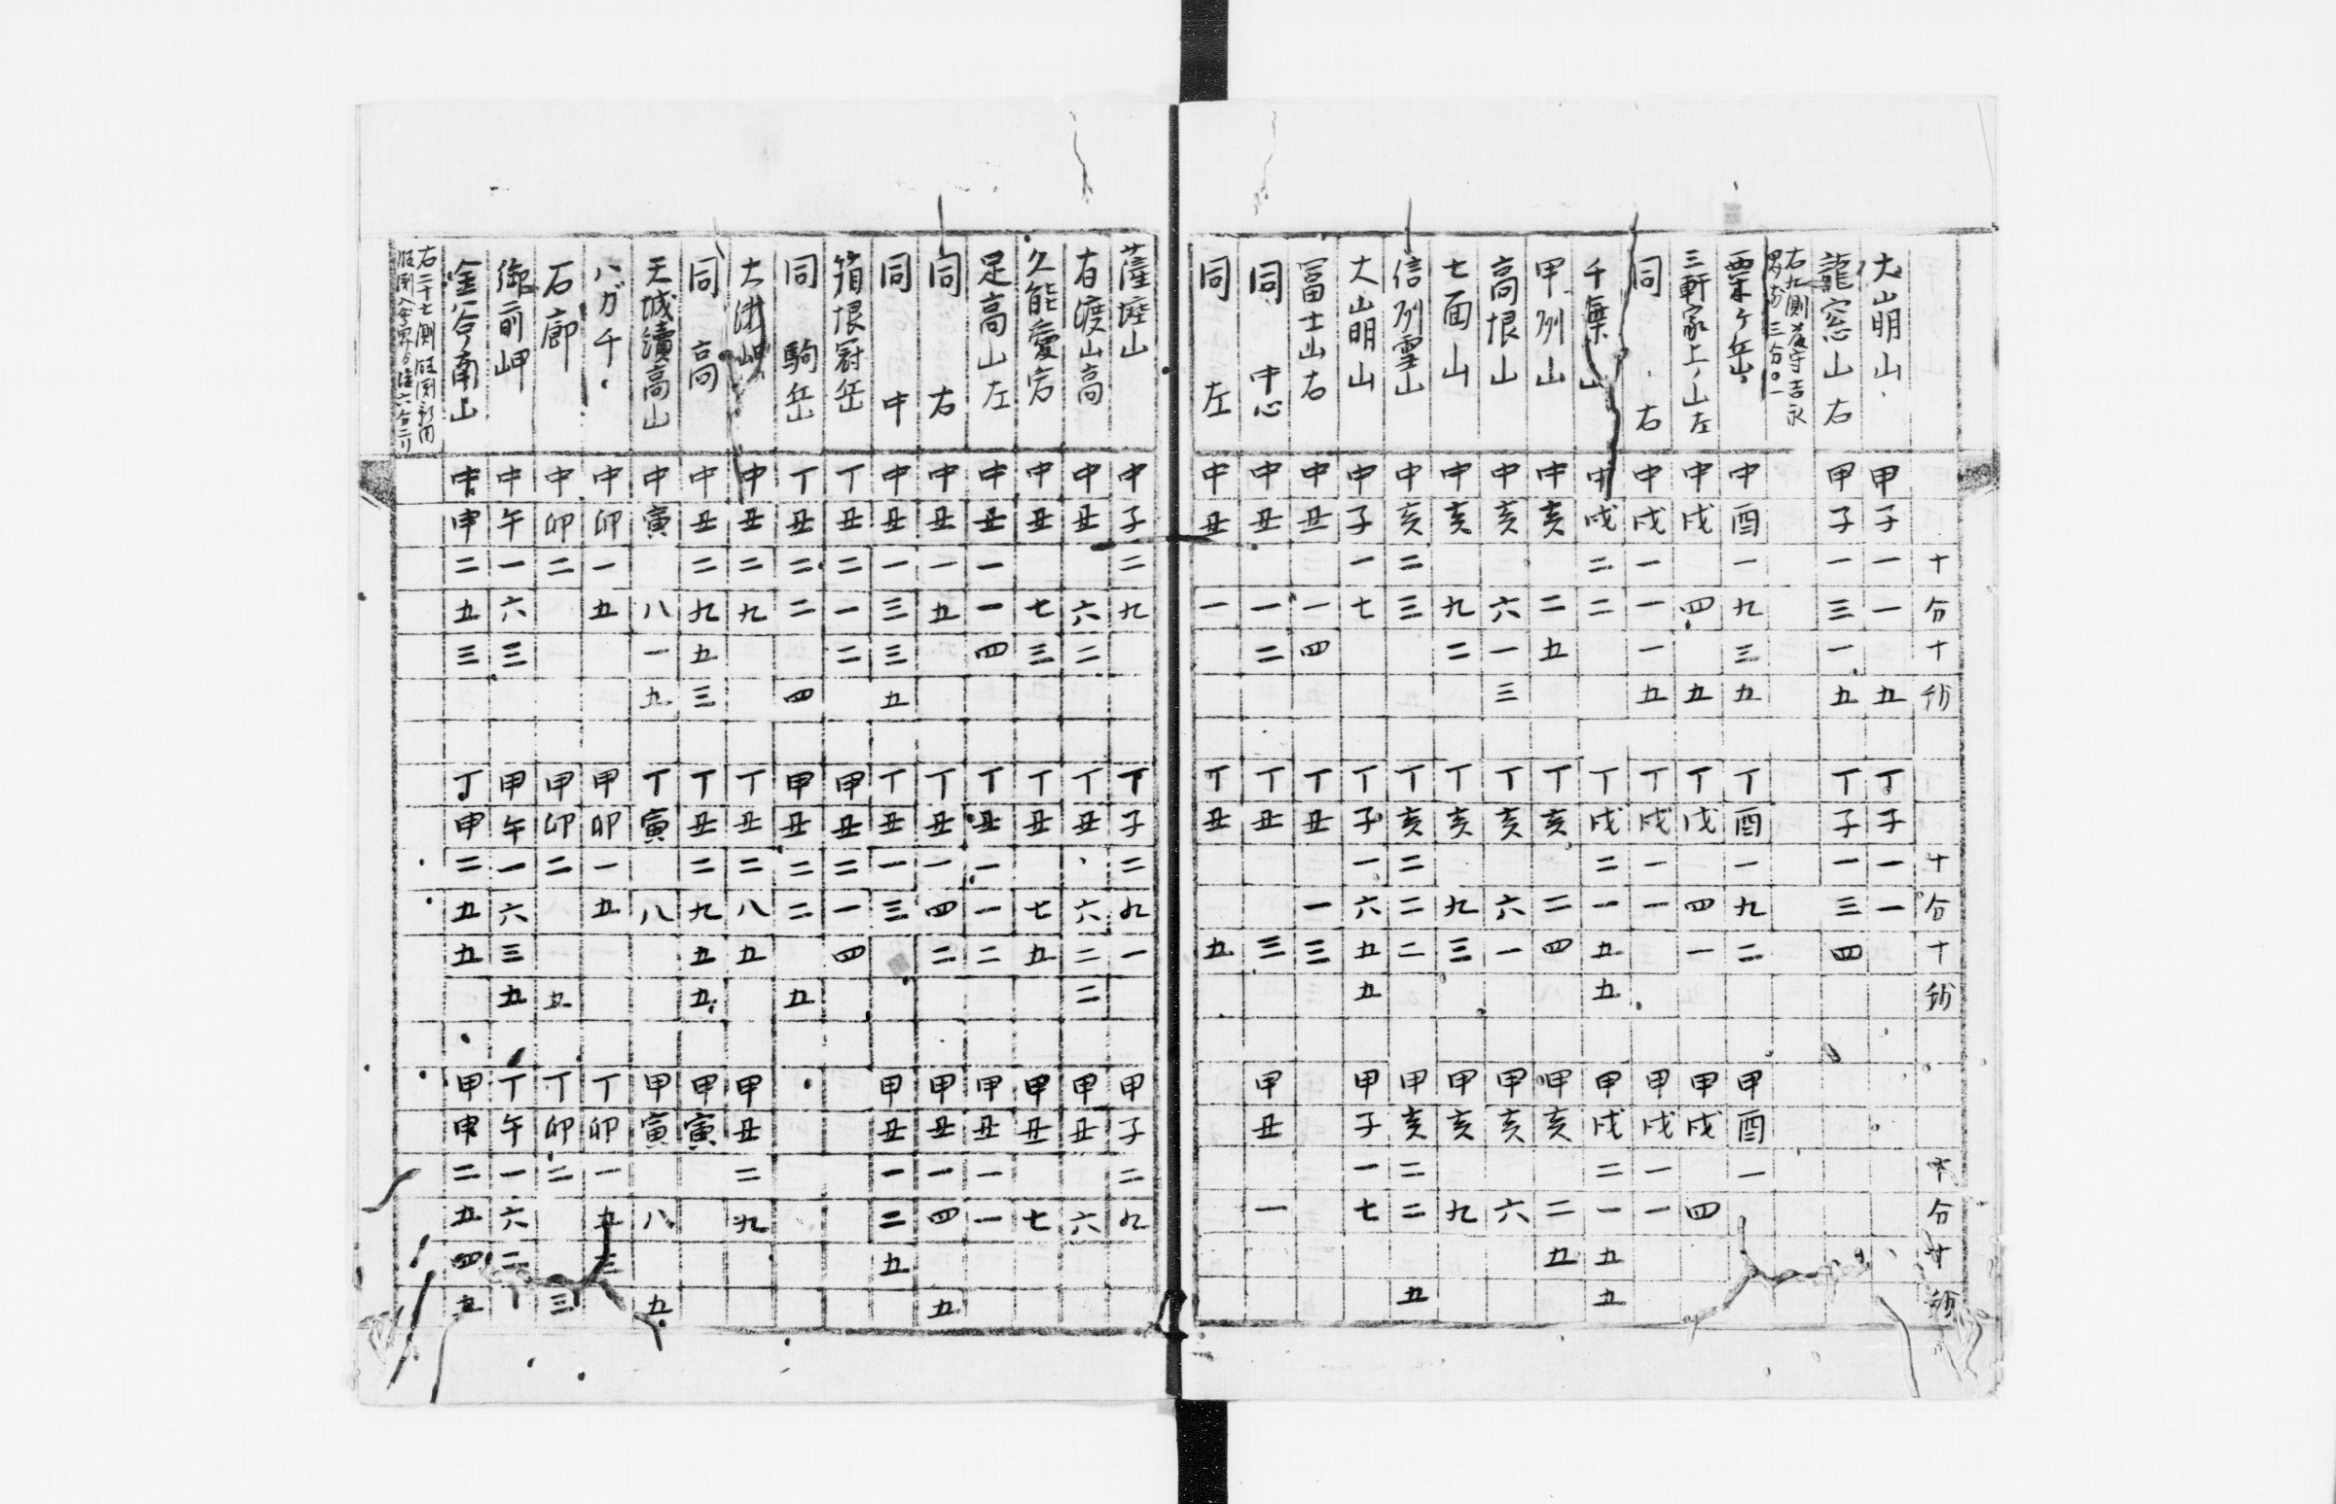 十分十秒 十分十秒 十分十秒
大山明山 甲子一一五 丁子一一
龍窓山右 甲子一三一五 丁子一三四
粟ヶ岳 中酉一九三五 丁酉一九二 甲酉一
三軒家上ノ山左 中戌四五 丁戌四一 甲戌四
同右 中戌一一一五 丁戌一一 甲戌一一
千葉山 中戌二二 丁戌二一五五 甲戌二一五五
甲州山 中亥二五 丁亥二四 甲亥二五
高根山 中亥六一三 丁亥六一 甲亥六
七面山 中亥九二 丁亥九三 甲亥九
信州雪山 中亥二三 丁亥二二二 甲亥二二五
大山明山 中子一七 丁子一六五五 甲子一七
冨士山右 中丑一四 丁丑一三
同中心 中丑一二 丁丑三 甲丑一
同左 中丑一 丁丑五
薩埵山 中子二九 丁子二九一 甲子二九
有渡山高 中丑六二 丁丑六二二 甲丑六
久能愛宕 中丑七三 丁丑七五 甲丑七
足高山左 中丑一一四 丁丑一一二 甲丑一一
同右 中丑一五 丁丑一四二 甲丑一四五
同中 中丑一三三五 丁丑一三 甲丑一二五
箱根冠岳 丁丑二一二 甲丑二一四
同駒岳 丁丑二二四 甲丑二二五
大瀬岬 中丑二九 丁丑二八五 甲丑二九
同高 中丑二九五三 丁丑二九五五 甲寅
天城續高山 中寅八一九 丁寅八 甲寅八五
八ガ千 中卯一五 甲卯一五 丁卯一五三
石廊 中卯二 甲卯二五 丁卯二三
御前岬 中午一六三 甲午一六三五 丁午一六二
金谷南山 中申二五三 丁申二五五 甲申二五四五